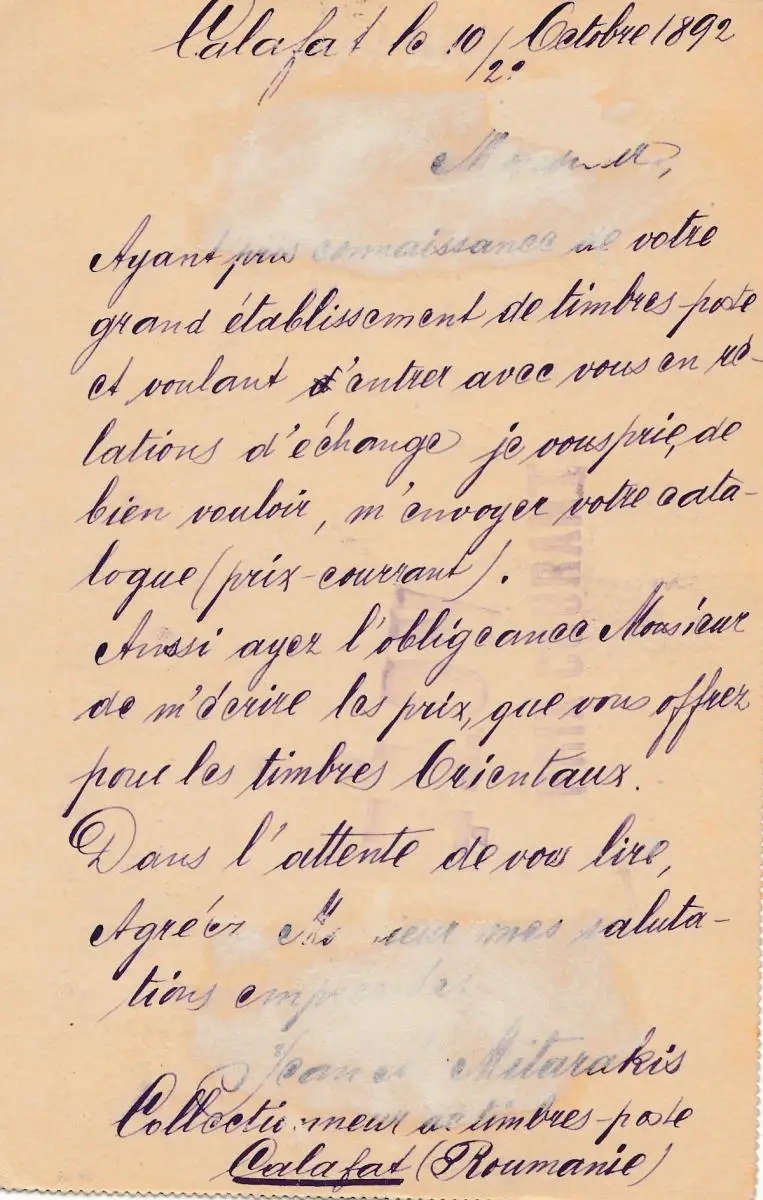 Calafat le 10/22 Octobre 1892
Ayant pris connaissance de votre
grand établissement de timbres-poste
et voulant d'entrer avec vous en ré-
lations d'échange je vous prie, de
bien vouloir, m'envoyer votre cata-
logue (prix-courrant).
Aussi ayez l'obligeance Monsieur
de m'écrire les prix, que vous offrez
pour les timbres Orientaux.
Dans l'attente de vous lire,
Agréez Monsieur mes saluta-
tions
Jean Mitarakis
Collectionneur de timbres-poste
Calafat (Roumanie)